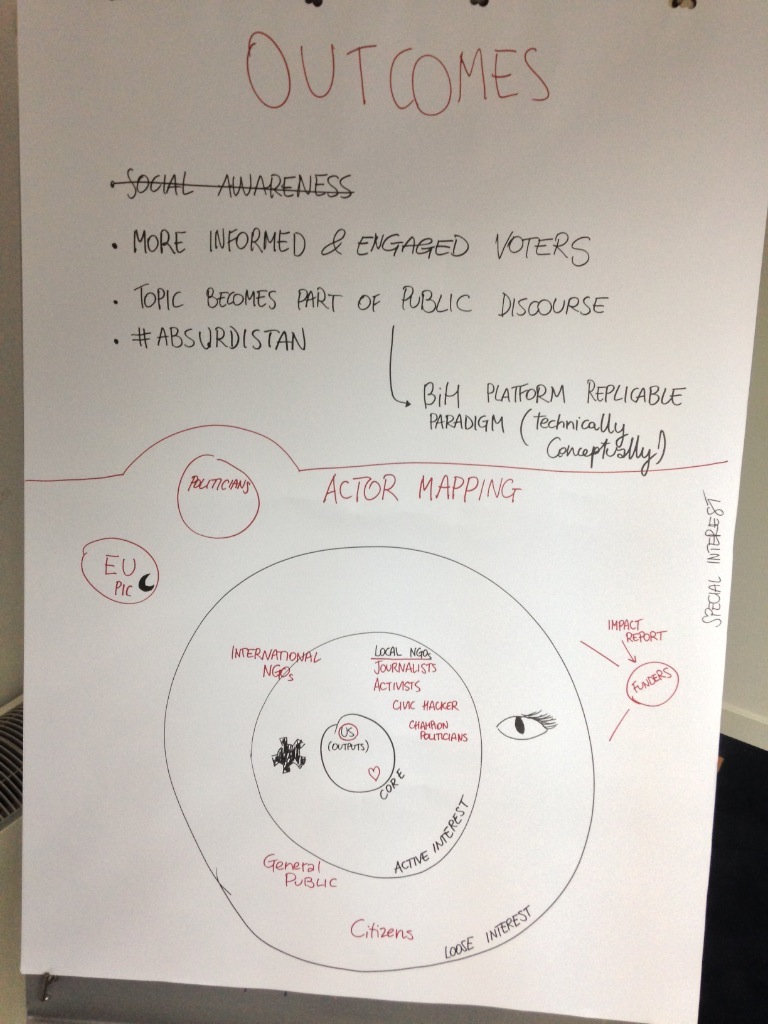 OUTCOMES
· SOCIAL AWARENESS
· MORE INFORMED & ENGAGED VOTERS
· TOPIC BECOMES PART OF PUBLIC DISCOURSE
· #ABSURDISTAN
BiH PLATFORM REPLICABLE
PARADIGM (technically
Conceptually!)
POLITICIANS
ACTOR MAPPING
EU
PIC
SPECIAL INTEREST
IMPACT
REPORT
FUNDERS
INTERNATIONAL
NGOs
LOCAL NGOs
JOURNALISTS
ACTIVISTS
CIVIC HACKER
CHAMPION
POLITICIANS
US
(OUTPUTS)
CORE
ACTIVE INTEREST
General
PUBLIC
Citizens
LOOSE INTEREST